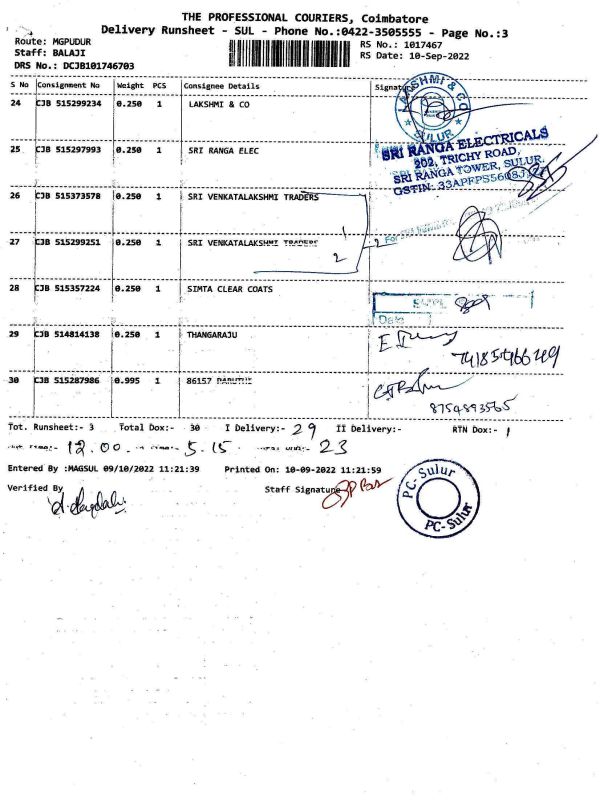 THE PROFESSIONAL COURIERS, Coimbatore
Delivery Runsheet - SUL - Phone No.:0422-3505555 - Page No.:3
Route: MGPUDUR
Staff: BALAJI
DRS No.: DCJB101746703
RS No.: 1017467
RS Date: 10-Sep-2022
S No Consignment No Weight PCS Consignee Details Signature
24 CJB 515299234 0.250 1 LAKSHMI & CO
LAKSHMI & CO
SULUR
25 CJB 515297993 0.250 1 SRI RANGA ELEC
SRI RANGA ELECTRICALS
202, TRICHY ROAD,
SRI RANGA TOWER, SULUR.
GSTIN: 33APFPS5608J
26 CJB 515373578 0.250 1 SRI VENKATALAKSHMI TRADERS
27 CJB 515299251 0.250 1 SRI VENKATALAKSHMI TRADERS
1
2
-2
For
28 CJB 515357224 0.250 1 SIMTA CLEAR COATS
Date
29 CJB 514814138 0.250 1 THANGARAJU
30 CJB 515287986 0.995 1 86157
8754893565
Tot. Runsheet:- 3 Total Dox:- 30 I Delivery:- 29 II Delivery:- RTN Dox:- 1
12.00 5.15 23
Entered By :MAGSUL 09/10/2022 11:21:39 Printed On: 10-09-2022 11:21:59
Verified By
Staff Signature
PC-Sulur
PC-Sulur